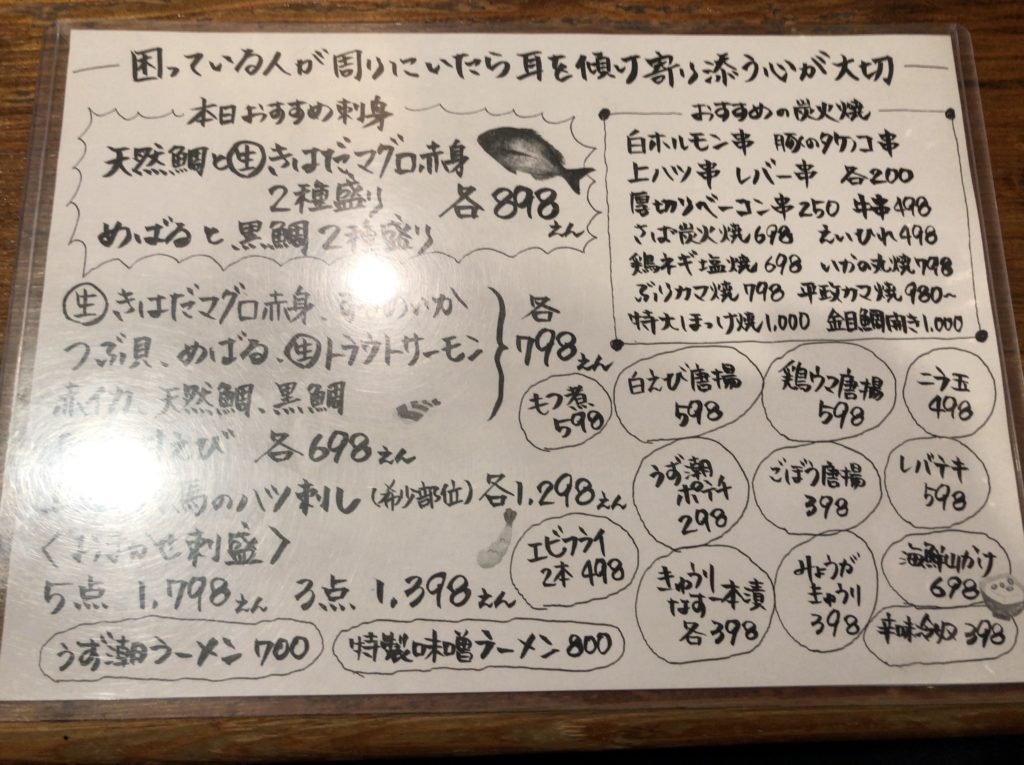 困っている人が周りにいたら耳を傾け寄り添う心が大切
本日おすすめ刺身
天然鯛と生きはだマグロ赤身
2種盛り 各898えん
めばると黒鯛2種盛り
生きはだマグロ赤身、
つぶ貝、めばる、生トラウトサーモン
赤イカ、天然鯛、黒鯛
各
798えん
えび 各698えん
馬のハツ刺し(希少部位)各1,298えん
〈おまかせ刺盛〉
5点 1,798えん 3点 1,398えん
うず潮ラーメン700
特製味噌ラーメン800
おすすめの炭火焼
白ホルモン串 豚のタケノコ串
上ハツ串 レバー串 各200
厚切りベーコン串250 牛串498
さば炭火焼698 えいひれ498
鶏ネギ塩焼698 いかの丸焼798
ぶりカマ焼798 平政カマ焼980~
特大ほっけ焼1,000 金目鯛開き1,000
もつ煮
598
白えび唐揚
598
鶏ウマ唐揚
598
ニラ玉
498
うず潮
ポテチ
298
ごぼう唐揚
398
レバテキ
598
エビフライ
2本 498
きゅうり
なす一本漬
各398
みょうが
きゅうり
398
海鮮山かけ
698
辛味冷奴398